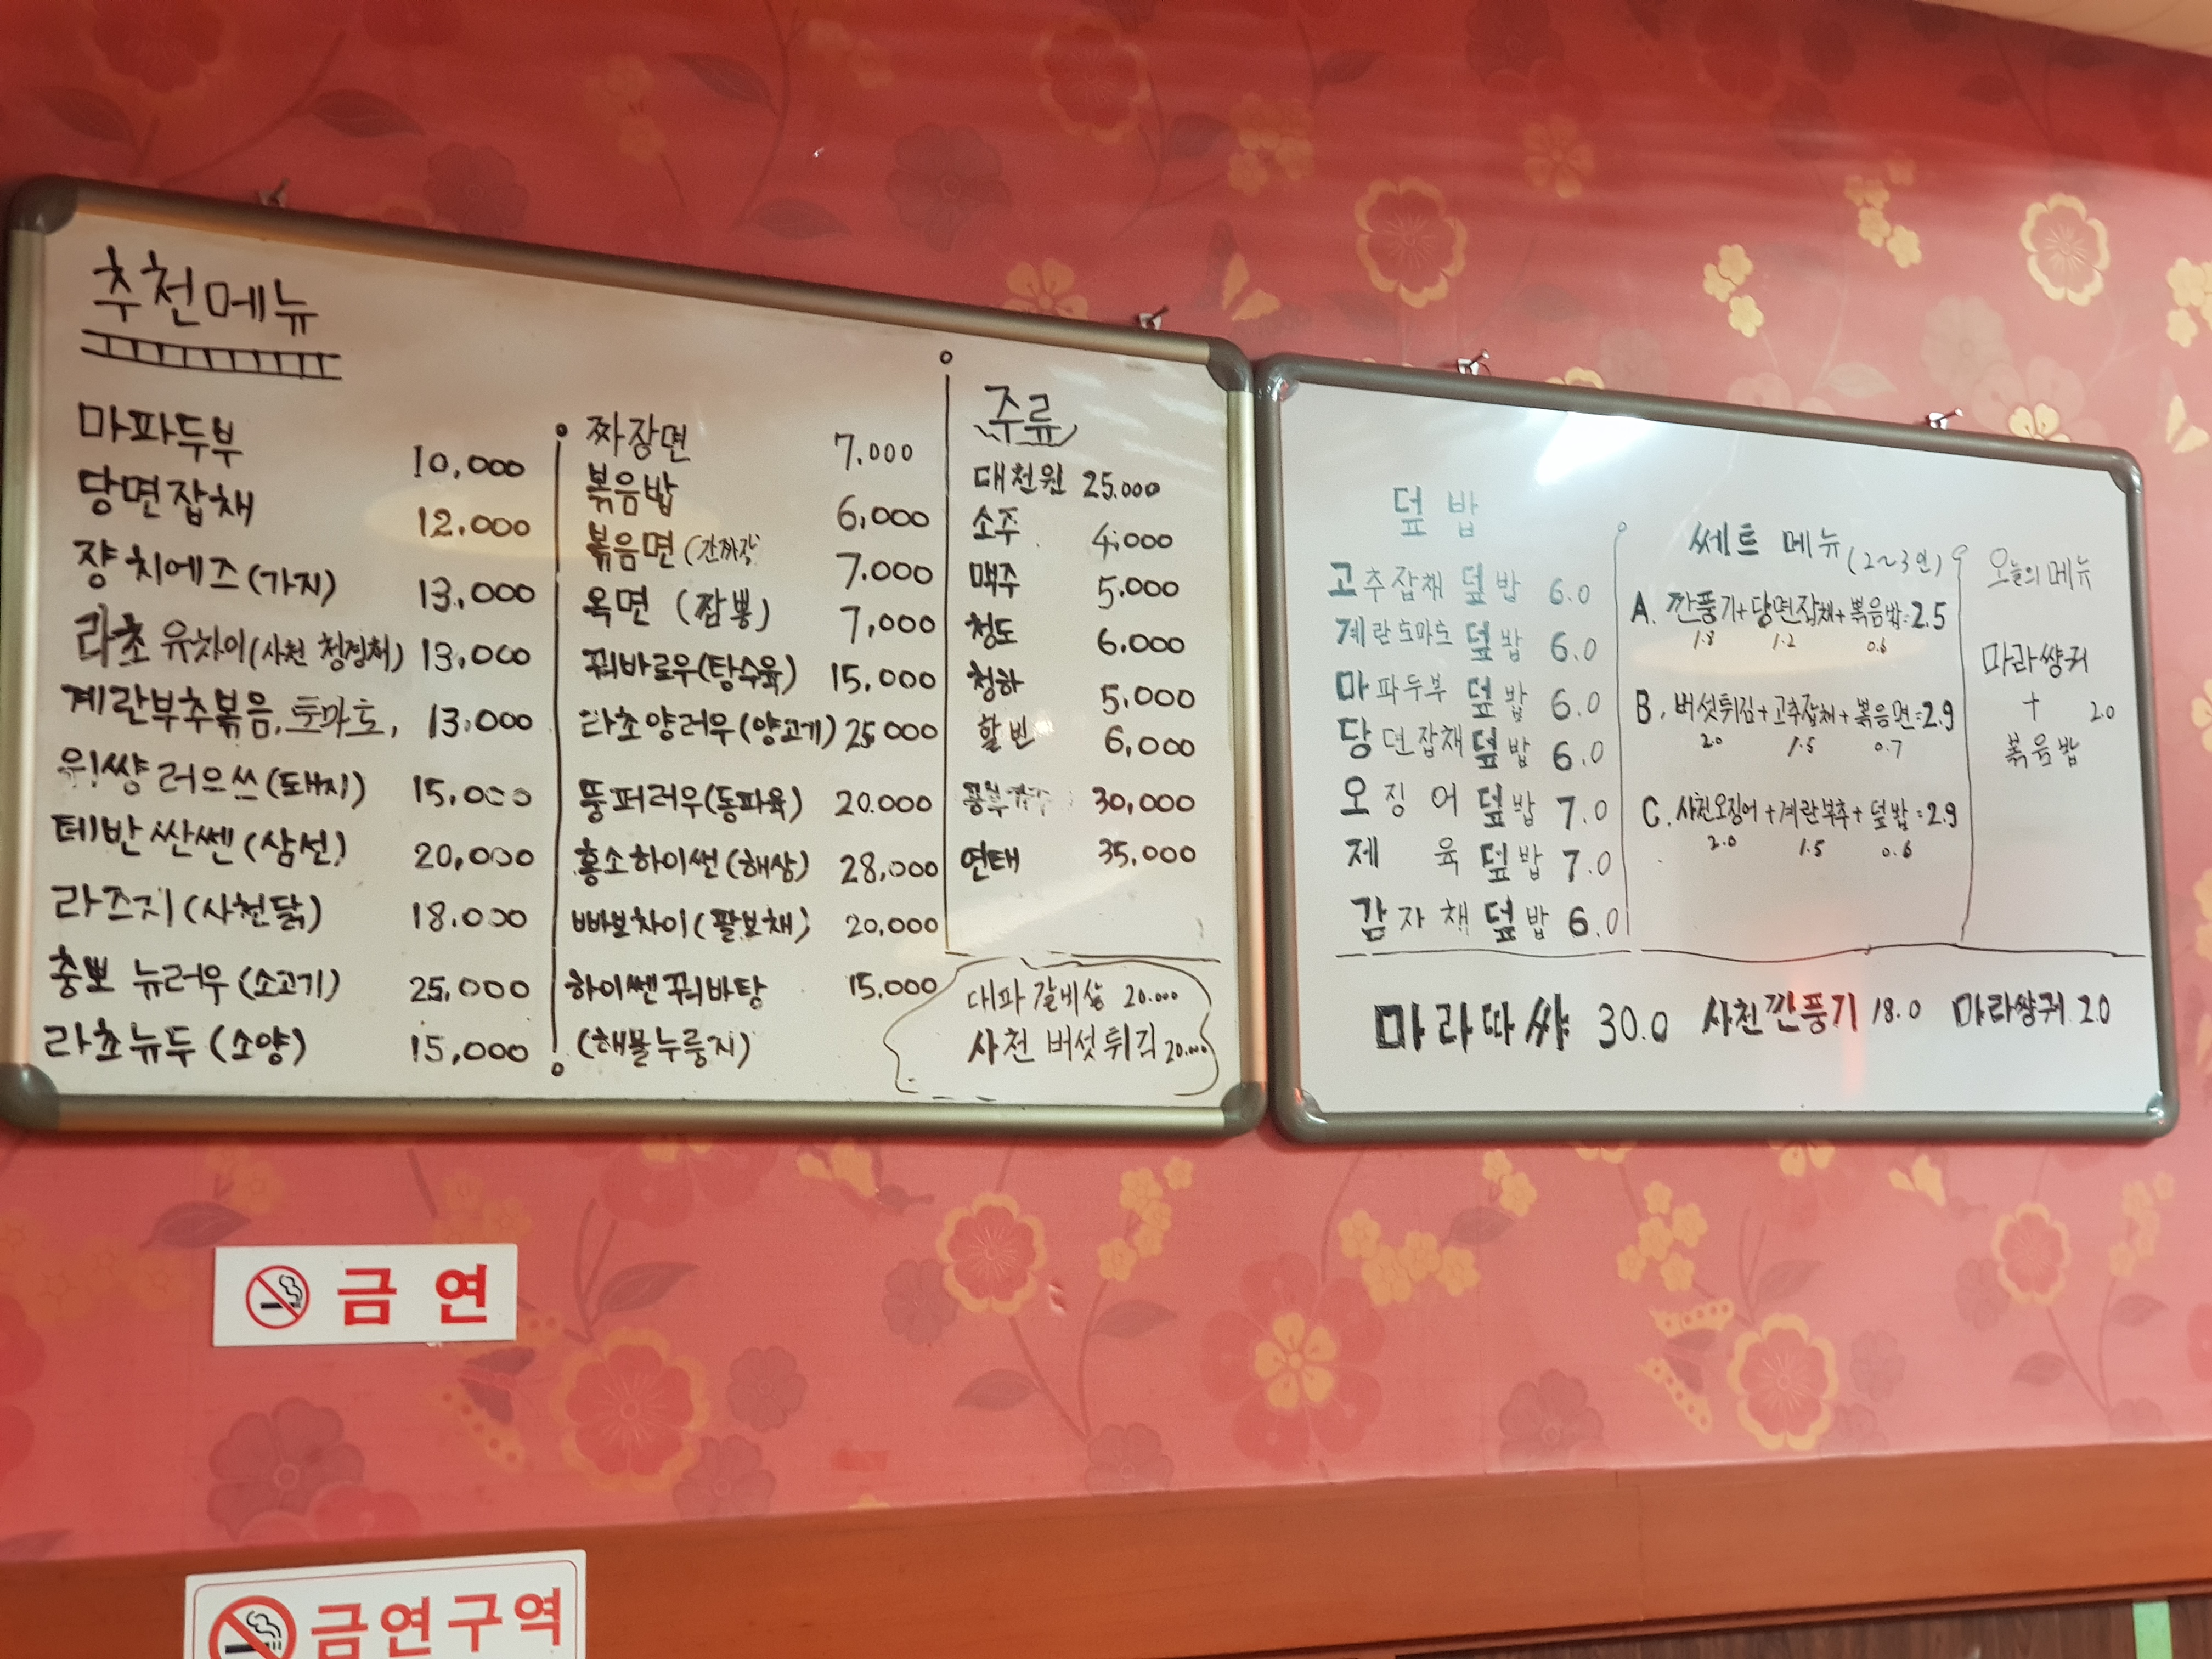 추천메뉴
마파두부 10,000
당면잡채 12.000
쟝치에즈(가지) 13,000
라초유차이(사천 청경채) 13,000
계란부추볶음, 토마토, 13,000
위!썅러으쓰(돼지) 15,000
테반싼쎈(삼선) 20,000
라즈지(사천닭) 18.000
충뽀 뉴러우(소고기) 25,000
라초뉴두(소양) 15,000
짜장면 7.000
볶음밥 6,000
볶음면(간짜장 7.000
옥면(짬뽕) 7,000
꿔바로우(탕수육) 15,000
라초양러우(양고기) 25,000
뚱퍼러우(동파육) 20.000
홍소하이썬(해삼) 28,000
빠보차이(팔보채) 20,000
하이쎈꿔바탕 15.000
(해물누룽지)
주류
대천원 25.000
소주 4,000
맥주 5.000
청도 6.000
청하 5,000
할빈 6,000
30,000
연태 35,000
대파갈비살 20.000
사천 버섯튀김 20.000
덮밥
고추잡채 덮밥 6.0
계란토마토 덮밥 6.0
마파두부 덮밥 6.0
당면잡채덮밥 6.0
오징어 덮밥 7.0
제육덮밥 7.0
감자채 덮밥 6.0
쎄트 메뉴(2~3인)
A. 깐풍기+당면잡채+볶음밥=2.5
1.8 1.2 0.6
B. 버섯튀김+고추잡채+볶음면=2.9
2.0 1.5 0.7
C. 사천오징어+계란부추+덮밥=2.9
2.0 1.5 0.6
오늘의메뉴
마라썅궈
+ 2.0
볶음밥
마라따쌰 30.0 사천깐풍기 18.0 마라썅궈 2.0
금연
금연구역